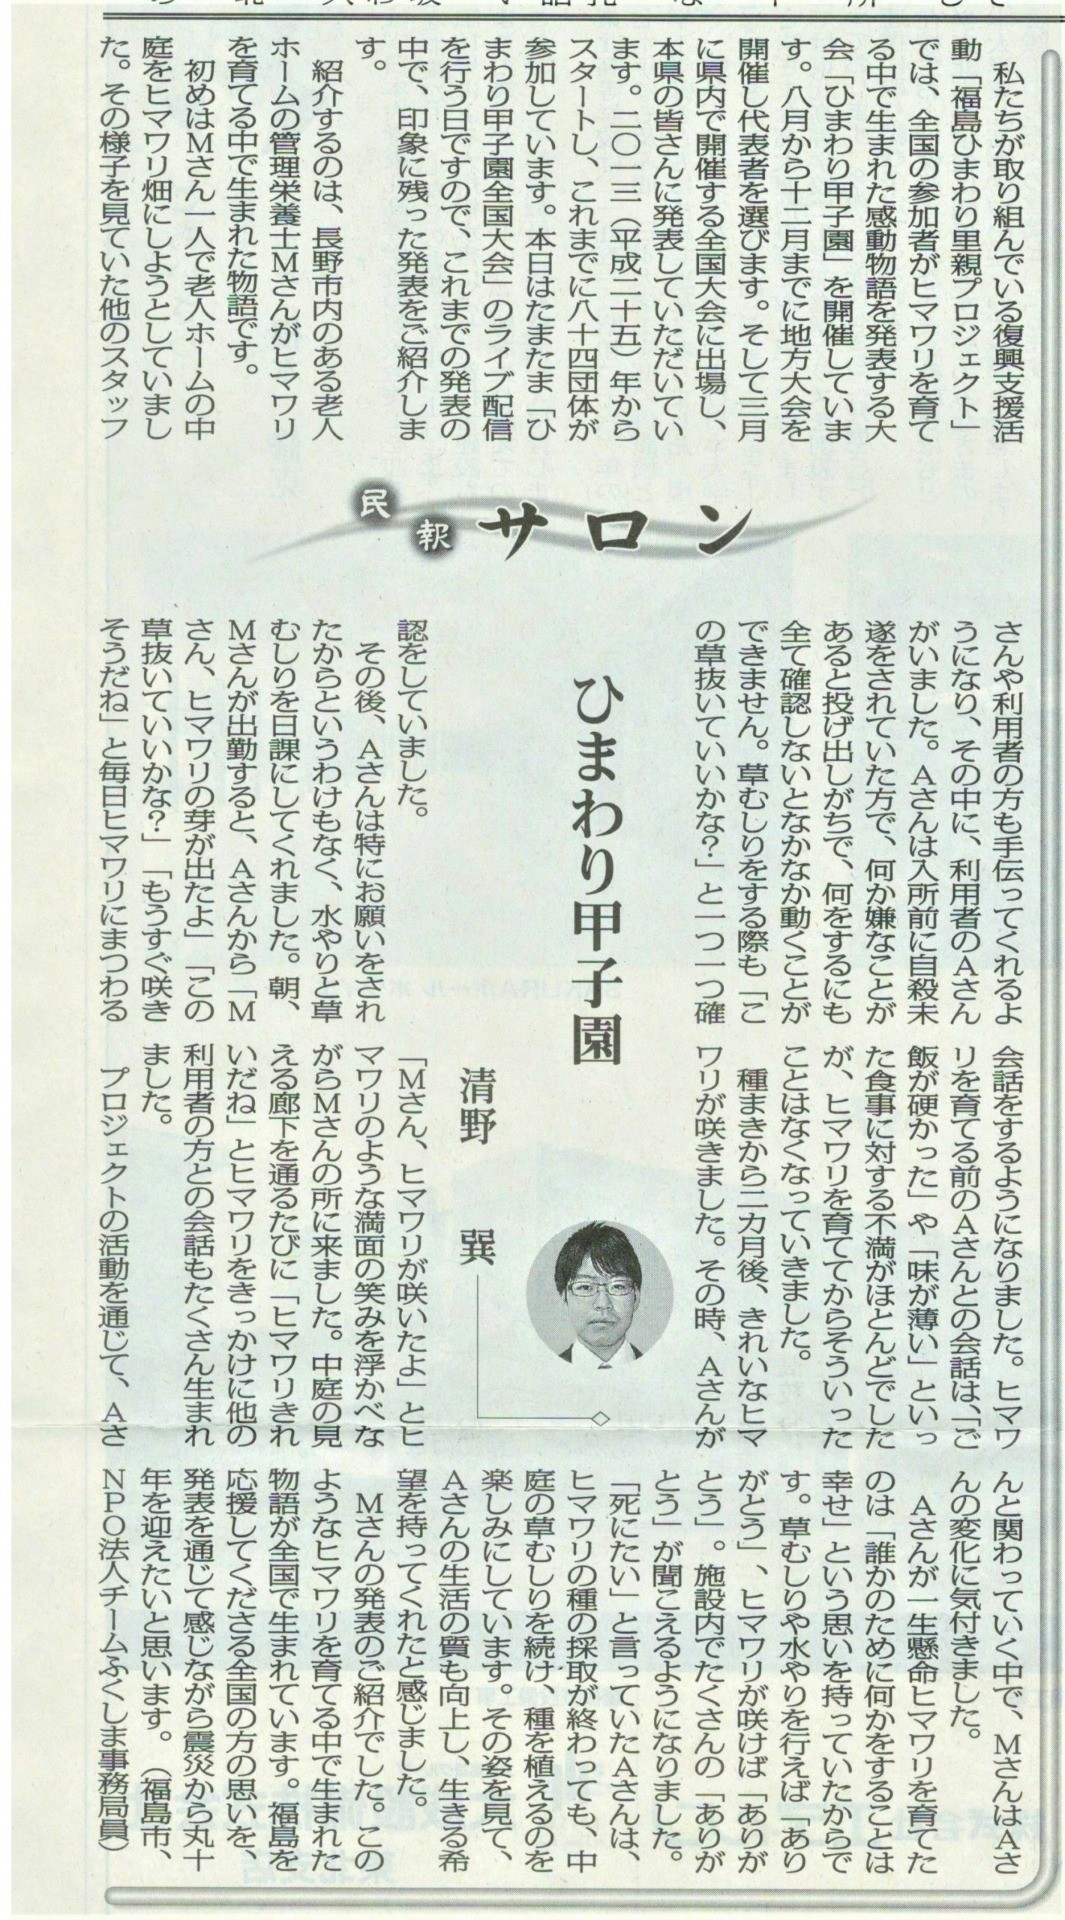 民報サロン
ひまわり甲子園
清野 巽
私たちが取り組んでいる復興支援活
動「福島ひまわり里親プロジェクト」
では、全国の参加者がヒマワリを育て
る中で生まれた感動物語を発表する大
会「ひまわり甲子園」を開催していま
す。八月から十二月までに地方大会を
開催し代表者を選びます。そして三月
に県内で開催する全国大会に出場し、
本県の皆さんに発表していただいてい
ます。二〇一三（平成二十五）年から
スタートし、これまでに八十四団体が
参加しています。本日はたまたま「ひ
まわり甲子園全国大会」のライブ配信
を行う日ですので、これまでの発表の
中で、印象に残った発表をご紹介しま
す。
紹介するのは、長野市内のある老人
ホームの管理栄養士Ｍさんがヒマワリ
を育てる中で生まれた物語です。
初めはＭさん一人で老人ホームの中
庭をヒマワリ畑にしようとしていまし
た。その様子を見ていた他のスタッフ
さんや利用者の方も手伝ってくれるよ
うになり、その中に、利用者のＡさん
がいました。Ａさんは入所前に自殺未
遂をされていた方で、何か嫌なことが
あると投げ出しがちで、何をするにも
全て確認しないとなかなか動くことが
できません。草むしりをする際も「こ
の草抜いていいかな？」と一つ一つ確
認をしていました。
その後、Ａさんは特にお願いをされ
たからというわけもなく、水やりと草
むしりを日課にしてくれました。朝、
Ｍさんが出勤すると、Ａさんから「Ｍ
さん、ヒマワリの芽が出たよ」「この
草抜いていいかな？」「もうすぐ咲き
そうだね」と毎日ヒマワリにまつわる
会話をするようになりました。ヒマワ
リを育てる前のＡさんとの会話は、「ご
飯が硬かった」や「味が薄い」といっ
た食事に対する不満がほとんどでした
が、ヒマワリを育ててからそういった
ことはなくなっていきました。
種まきから二カ月後、きれいなヒマ
ワリが咲きました。その時、Ａさんが
「Ｍさん、ヒマワリが咲いたよ」とヒ
マワリのような満面の笑みを浮かべな
がらＭさんの所に来ました。中庭の見
える廊下を通るたびに「ヒマワリきれ
いだね」とヒマワリをきっかけに他の
利用者の方との会話もたくさん生まれ
ました。
プロジェクトの活動を通じて、Ａさ
んと関わっていく中で、ＭさんはＡさ
んの変化に気付きました。
Ａさんが一生懸命ヒマワリを育てた
のは「誰かのために何かをすることは
幸せ」という思いを持っていたからで
す。草むしりや水やりを行えば「あり
がとう」、ヒマワリが咲けば「ありが
とう」。施設内でたくさんの「ありが
とう」が聞こえるようになりました。
「死にたい」と言っていたＡさんは、
ヒマワリの種の採取が終わっても、中
庭の草むしりを続け種を植えるのを
楽しみにしています。その姿を見て、
Ａさんの生活の質も向上し、生きる希
望を持ってくれたと感じました。
Ｍさんの発表のご紹介でした。この
ようなヒマワリを育てる中で生まれた
物語が全国で生まれています。福島を
応援してくださる全国の方の思いを、
発表を通じて感じながら震災から丸十
年を迎えたいと思います。（福島市、
ＮＰＯ法人チームふくしま事務局員）